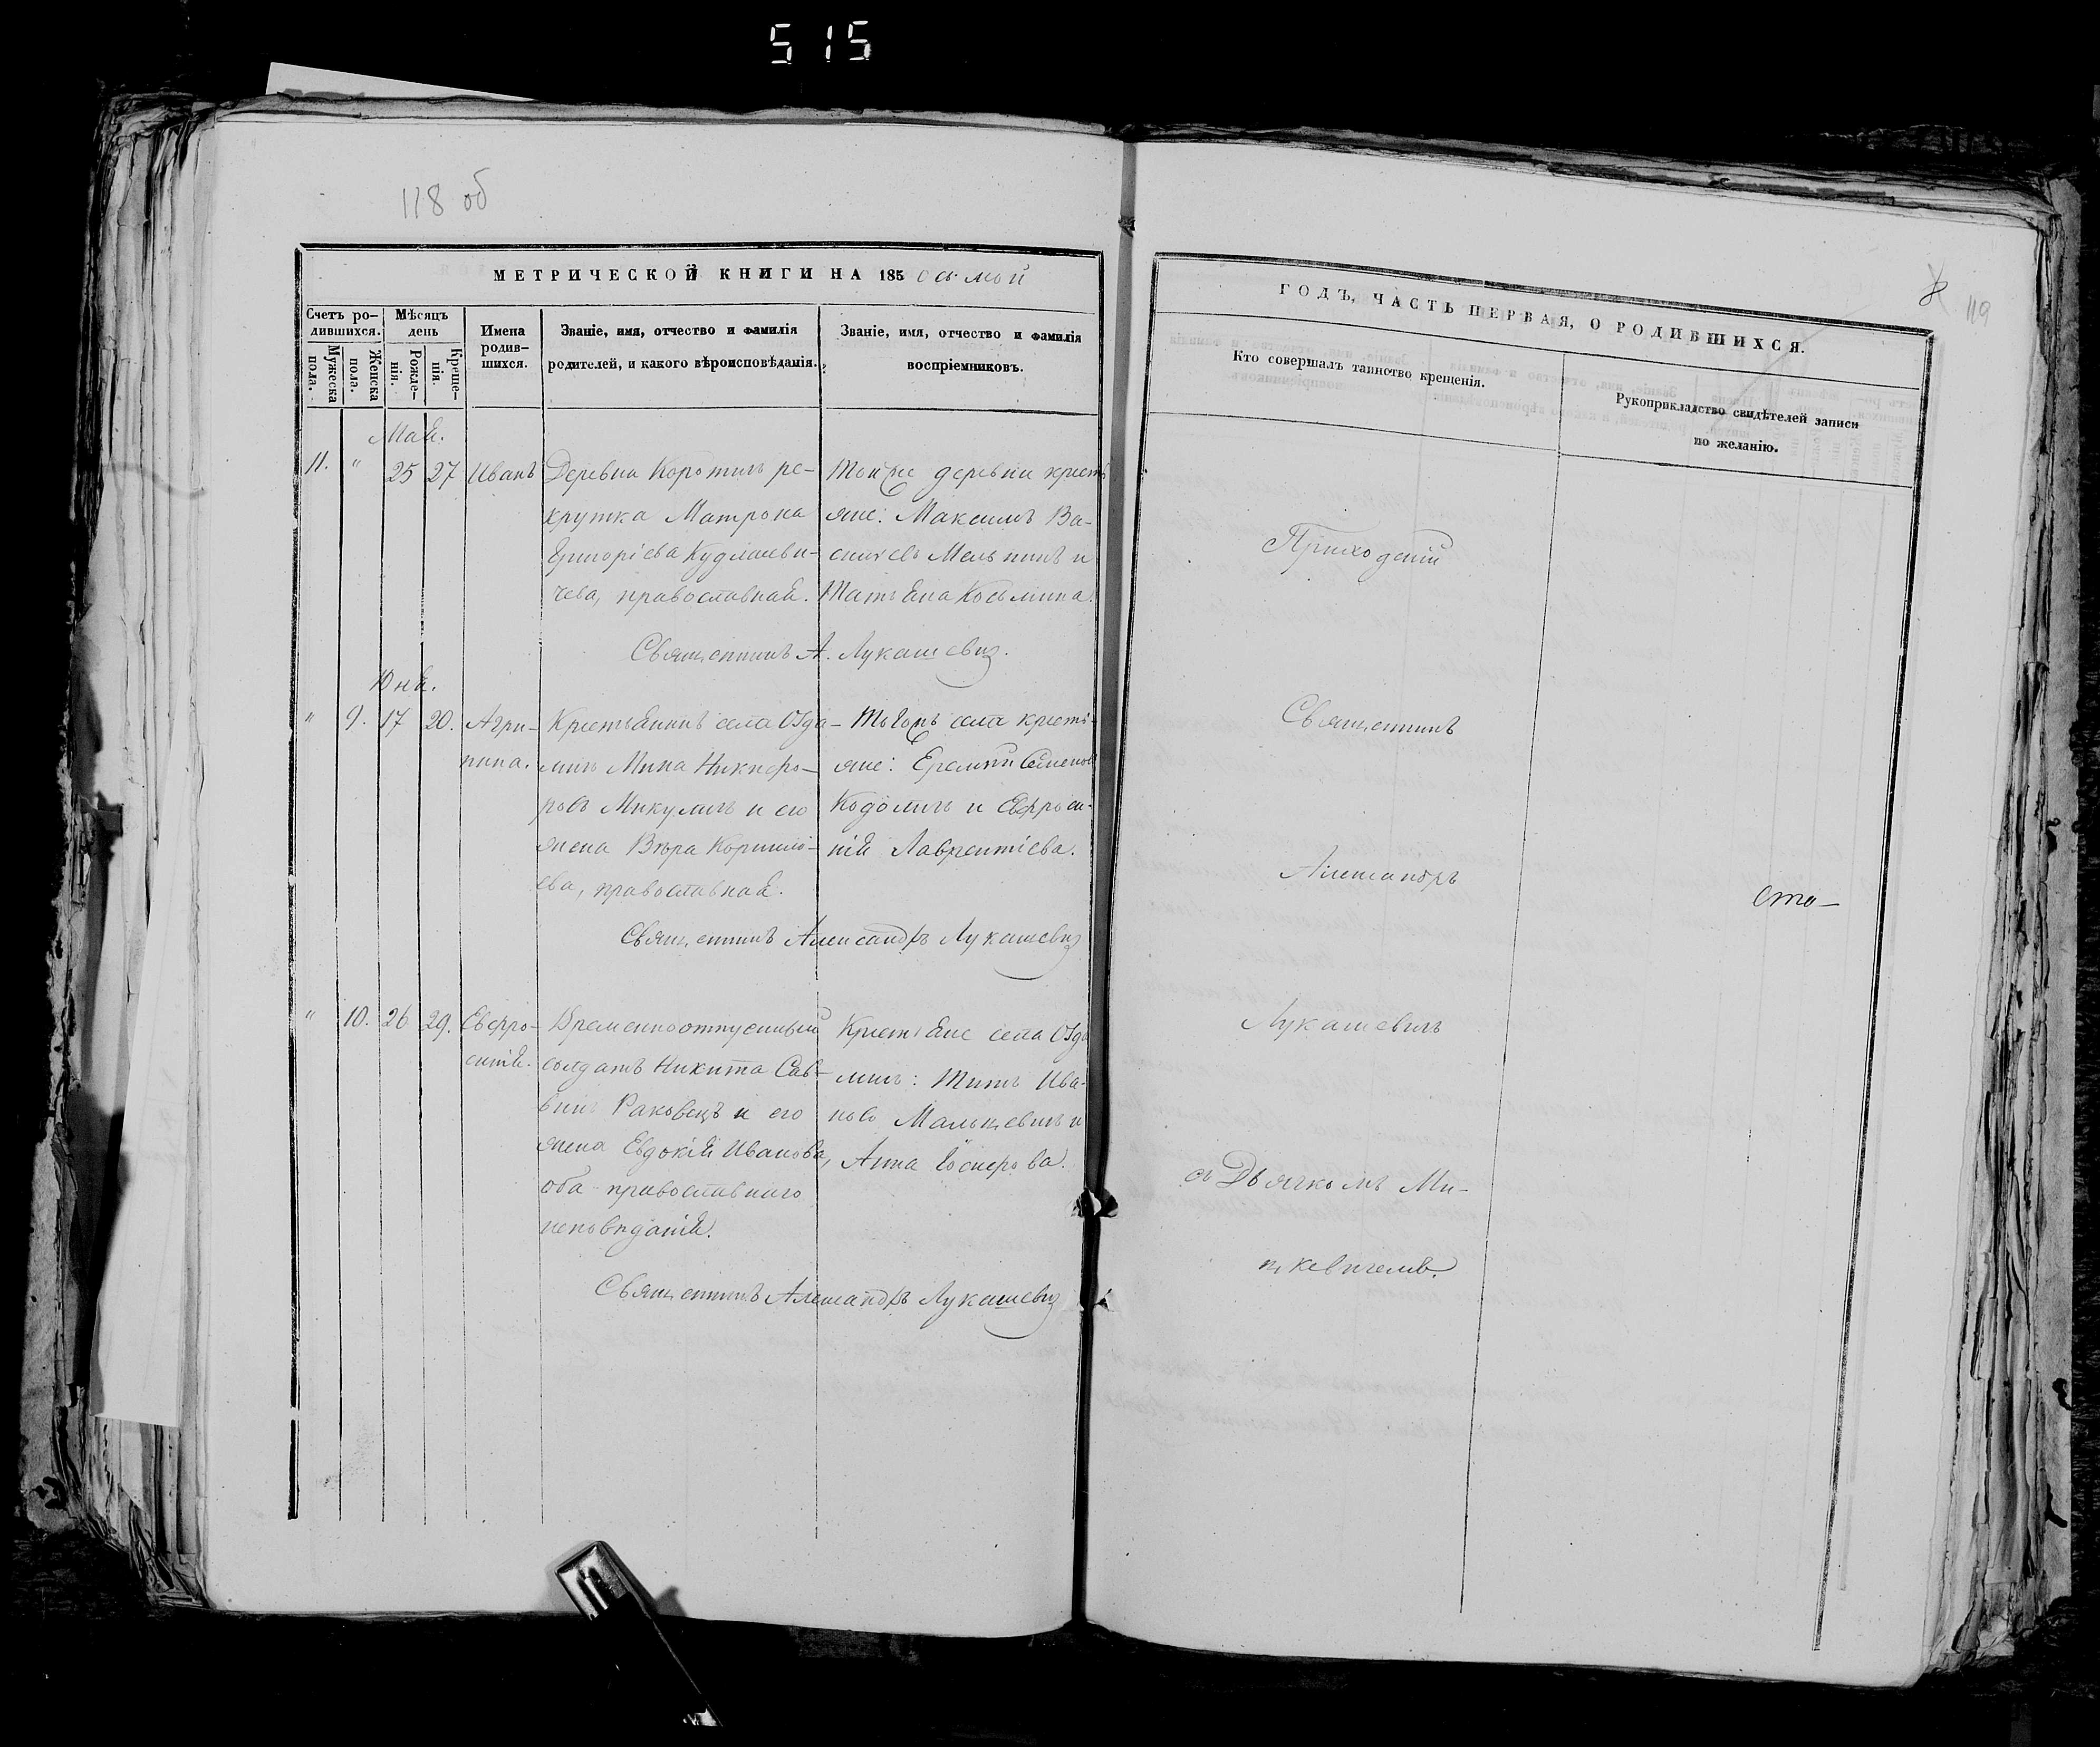 515
118 об
МЕТРИЧЕСКОЙ КНИГИ НА 185 осьмой
Счетъ ро-
дившихся.
Мужеска
пола.
Женска
пола.
Мѣсяцъ
день
Рожде-
нія.
Креще-
нія.
Имена
родив-
шихся.
Званіе, имя, отчество и фамилія
родителей, и какого вѣроисповѣданія.
Званіе, имя, отчество и фамилія
воспріемниковъ.
Мая.
11. " 25 27 Иванъ
Деревни Коротичъ ре-
крутка Матрона
Григоріева Кудлаеви-
чева, православная.
Тойже деревни кресть
яне: Максимъ Ва-
силіевъ Мельникъ и
Татьяна Косьмина.
Священникъ А. Лукашевич.
Юня.
" 9. 17 20. Агри-
пина.
Крестьянинъ села Озда-
мичъ Мина Никифо-
ровъ Микуличъ и его
жена Вѣра Корнилі-
ева, православная.
Тогожъ села кресть-
яне: Еремій Семенов
и Евфроси-
нія Лаврентіева.
Священникъ Александръ Лукашевич
" 10. 26 29. Евфро-
синія.
Временноотпускный
солдатъ Никита Сав-
винъ Раковецъ и его
жена Евдокія Иванова,
оба православнаго
исповѣданія.
Крестьяне села Озда
мичъ: Титъ Ива-
новъ Малькевичъ и
Анна
Священникъ Александръ Лукашевич
8
119
ГОДЪ, ЧАСТЬ ПЕРВАЯ, О РОДИВШИХСЯ.
Кто совершалъ таинство крещенія.
Рукоприкладство свидѣтелей записи
по желанію.
Приходскій
Священникъ
Александръ
сто-
Лукашевичъ
съ Дьячкомъ Ми-
цкевичемъ.